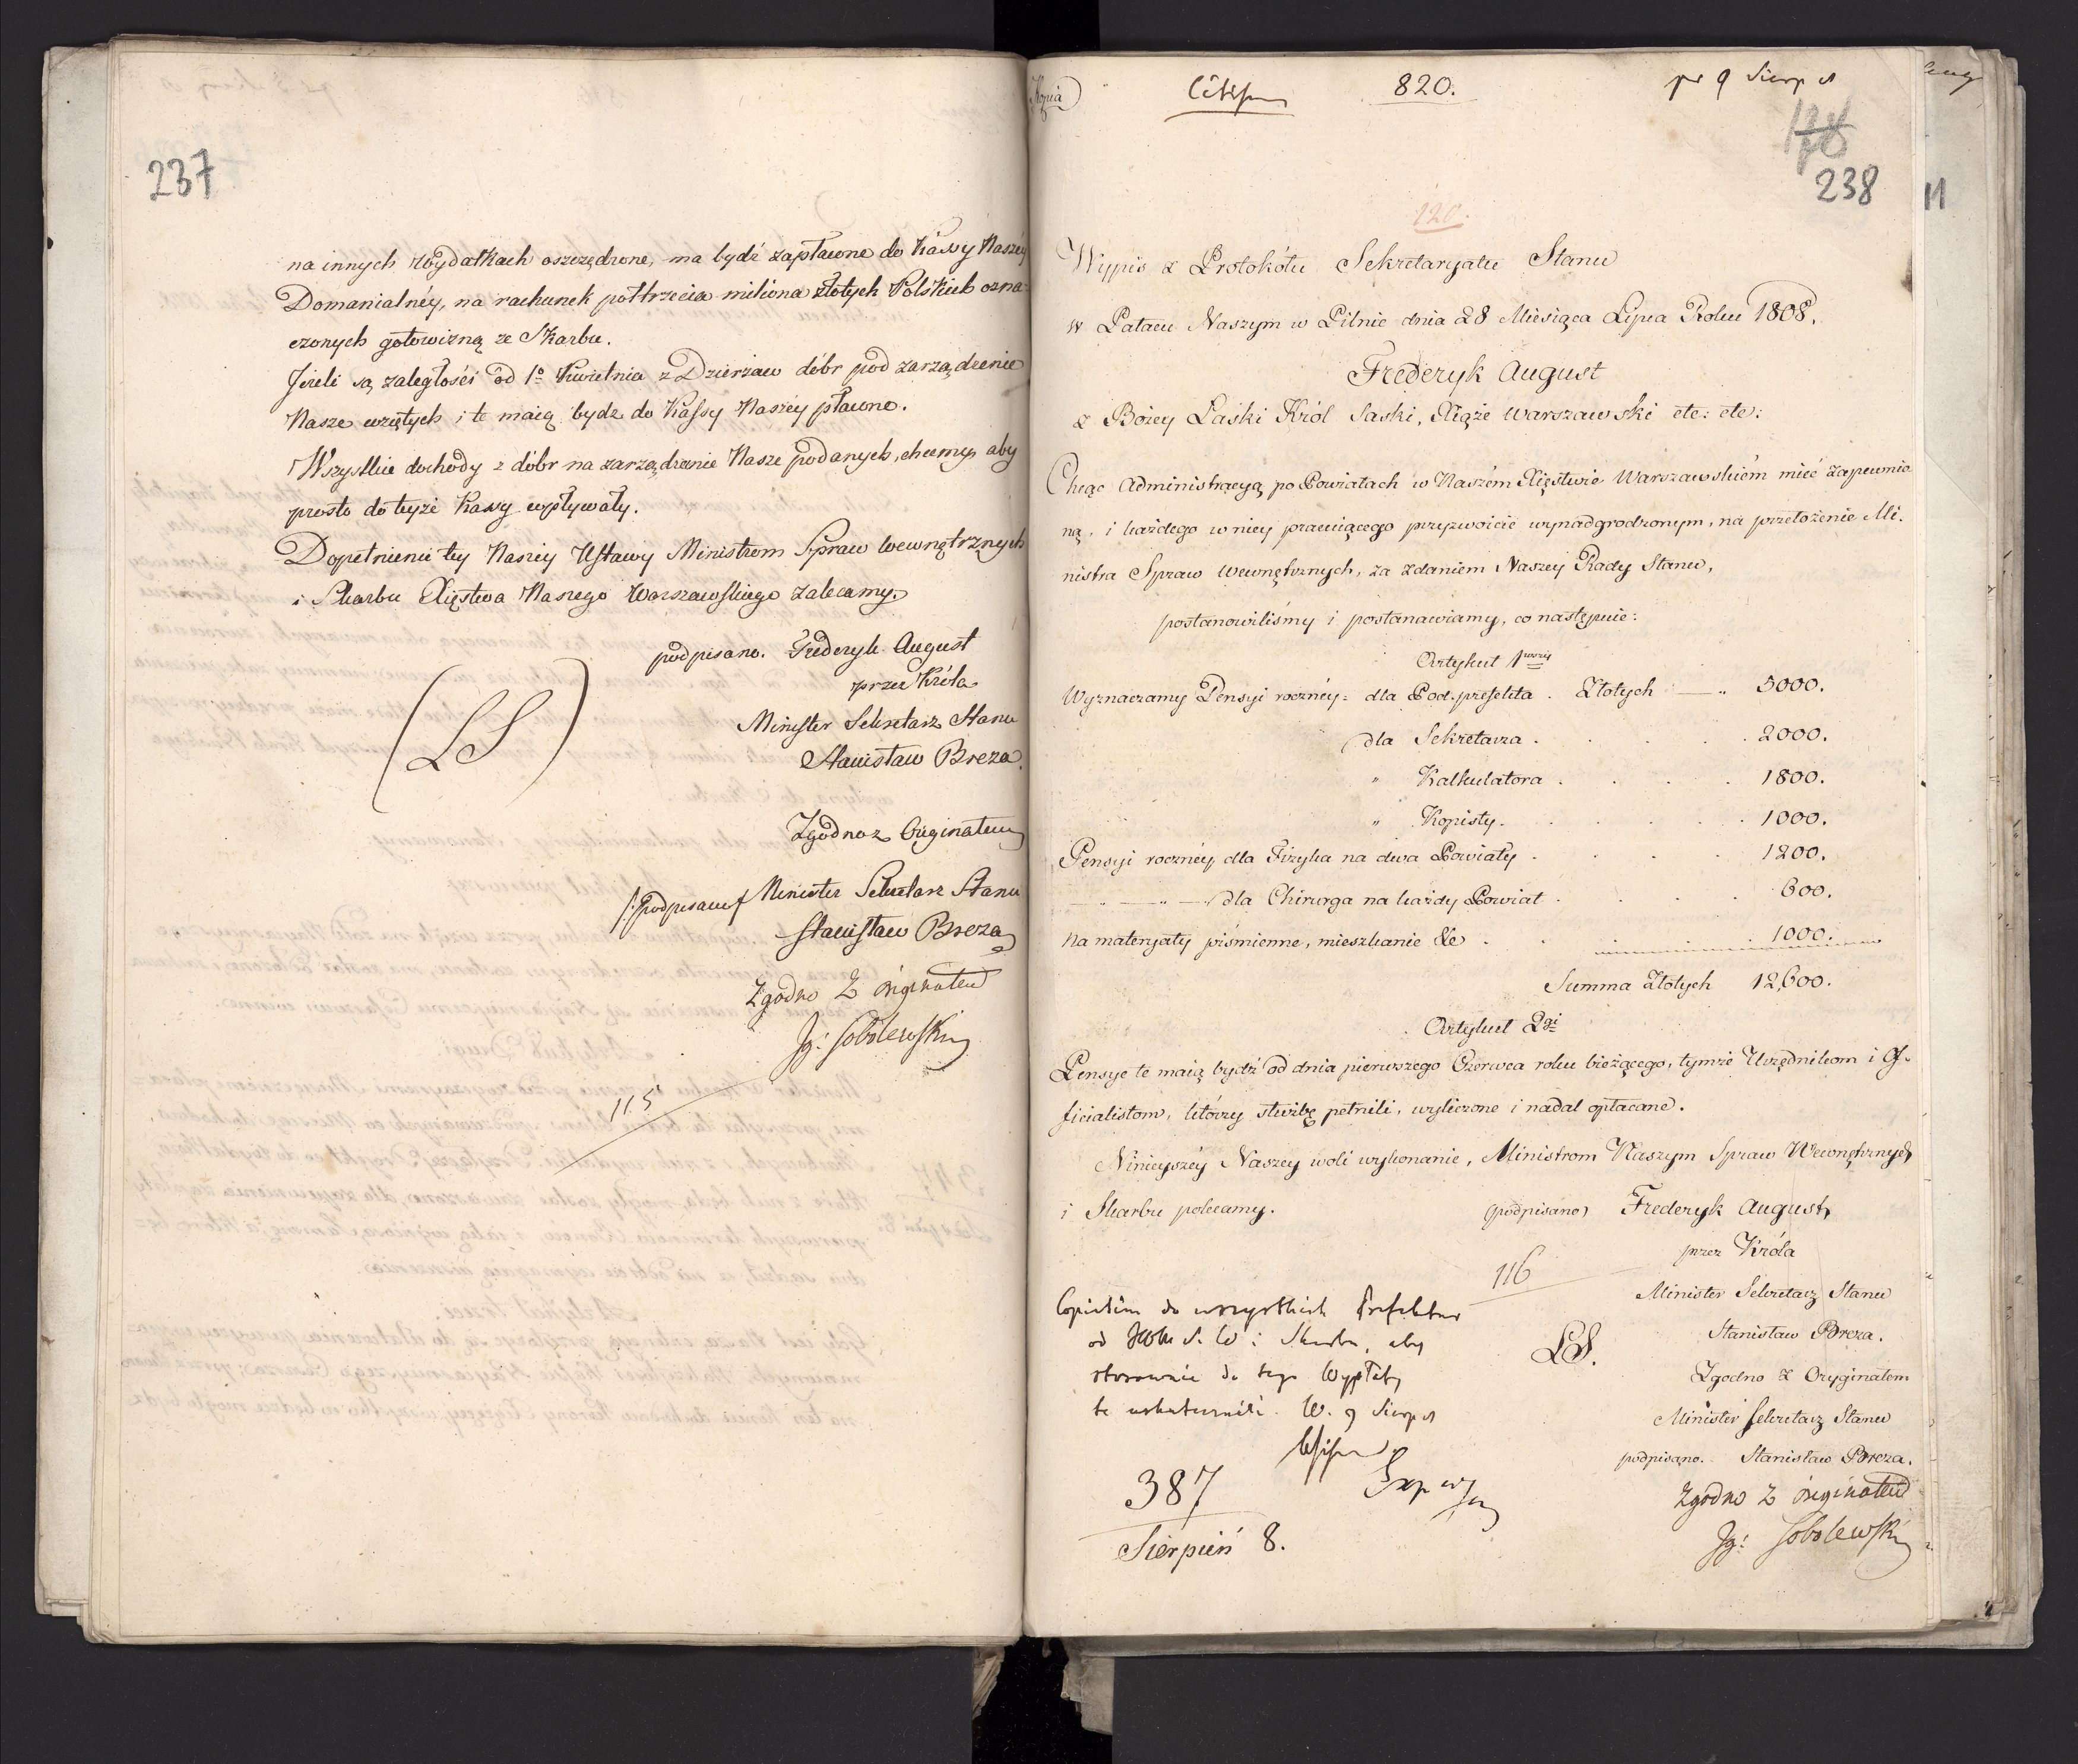 237
na innych wydatkach oszczędzone, ma bydź zapłacone do Kassy Naszéy
Domanialnéy, na rachunek półtrzecia miliona złotych Polskich ozna-
czonych gotowizną ze Skarbu.
Jeżeli są zaległości od 1º Kwietnia z Dzierżaw dóbr pod zarządzenie
Nasze wziętych i te maią bydz do Kassy Naszey płacone.
Wszystkie dochody z dóbr na zarządzenie Nasze podanych, chcemy aby
prosto do teyże Kassy wpływały.
Dopełnienie tey Naszey Ustawy Ministrom Spraw wewnętrznych
i Skarbu Xięstwa Naszego Warszawskiego zalecamy.
podpisano. Frederyk August
przez Króla
Minister Sekretarz Stanu
Stanisław Breza.
(LS)
Zgodno z Oryginałem
/:podpisany/ Minister Sekretarz Stanu
Stanisław Breza
Zgodno z originałem
Jg: Sobolewski
115
Kopia
820.
pr 9 Sierp
238
120.
Wypis z Protokółu Sekretaryatu Stanu
w Pałacu Naszym w Pilnic dnia 28 Miesiąca Lipca Roku 1808.
Frederyk August
z Bożey Łaski Król Saski, Xiąże Warszawski etc: etc:
Chcąc Administracyą po Powiatach w Naszém Xięstwie Warszawskiém mieć zapewnio
ną, i każdego w niey pracuiącego przyzwoicie wynadgrodzonym, na przełożenie Mi-
nistra Spraw Wewnętrznych, za zdaniem Naszey Rady Stanu,
postanowiliśmy i postanawiamy, co następuie:
Artykuł 1wszy
Wyznaczamy Pensyi roczney: dla Pod-prefekta. Złotych — „ 5000.
dla Sekretarza . . . . 2000.
„ Kalkulatora . . . . 1800.
„ Kopisty. . . . . 1000.
Pensyi roczney dla Fizyka na dwa Powiaty . . . . 1200.
— „ — „ — dla Chirurga na każdy Powiat . . . . 600.
na materyały piśmienne, mieszkanie &c . . . . 1000.
Summa Złotych 12,600.
Artykuł 2gi
Pensye te maią bydź od dnia pierwszego Czerwca roku bieżącego, tymże Urzędnikom i Of-
ficialistom, którzy służbę pełnili, wyliczone i nadal opłacane.
Ninieyszéy Naszey woli wykonanie, Ministrom Naszym Spraw Wewnętrznych
i Skarbu polecamy. (podpisano) Frederyk August
przez Króla
116
Minister Sekretarz Stanu
Stanisław Breza.
LS.
Zgodno z Oryginałem
Minister Sekretarz Stanu
podpisano. Stanisław Breza.
Zgodno z originałem
Jg: Sobolewski
do wszystkich Prefektur
od S. W: i Skarbu, aby
stosownie do tego Wypłaty
te uskutecznili. W. 9 Sierp
387
Sierpień 8.